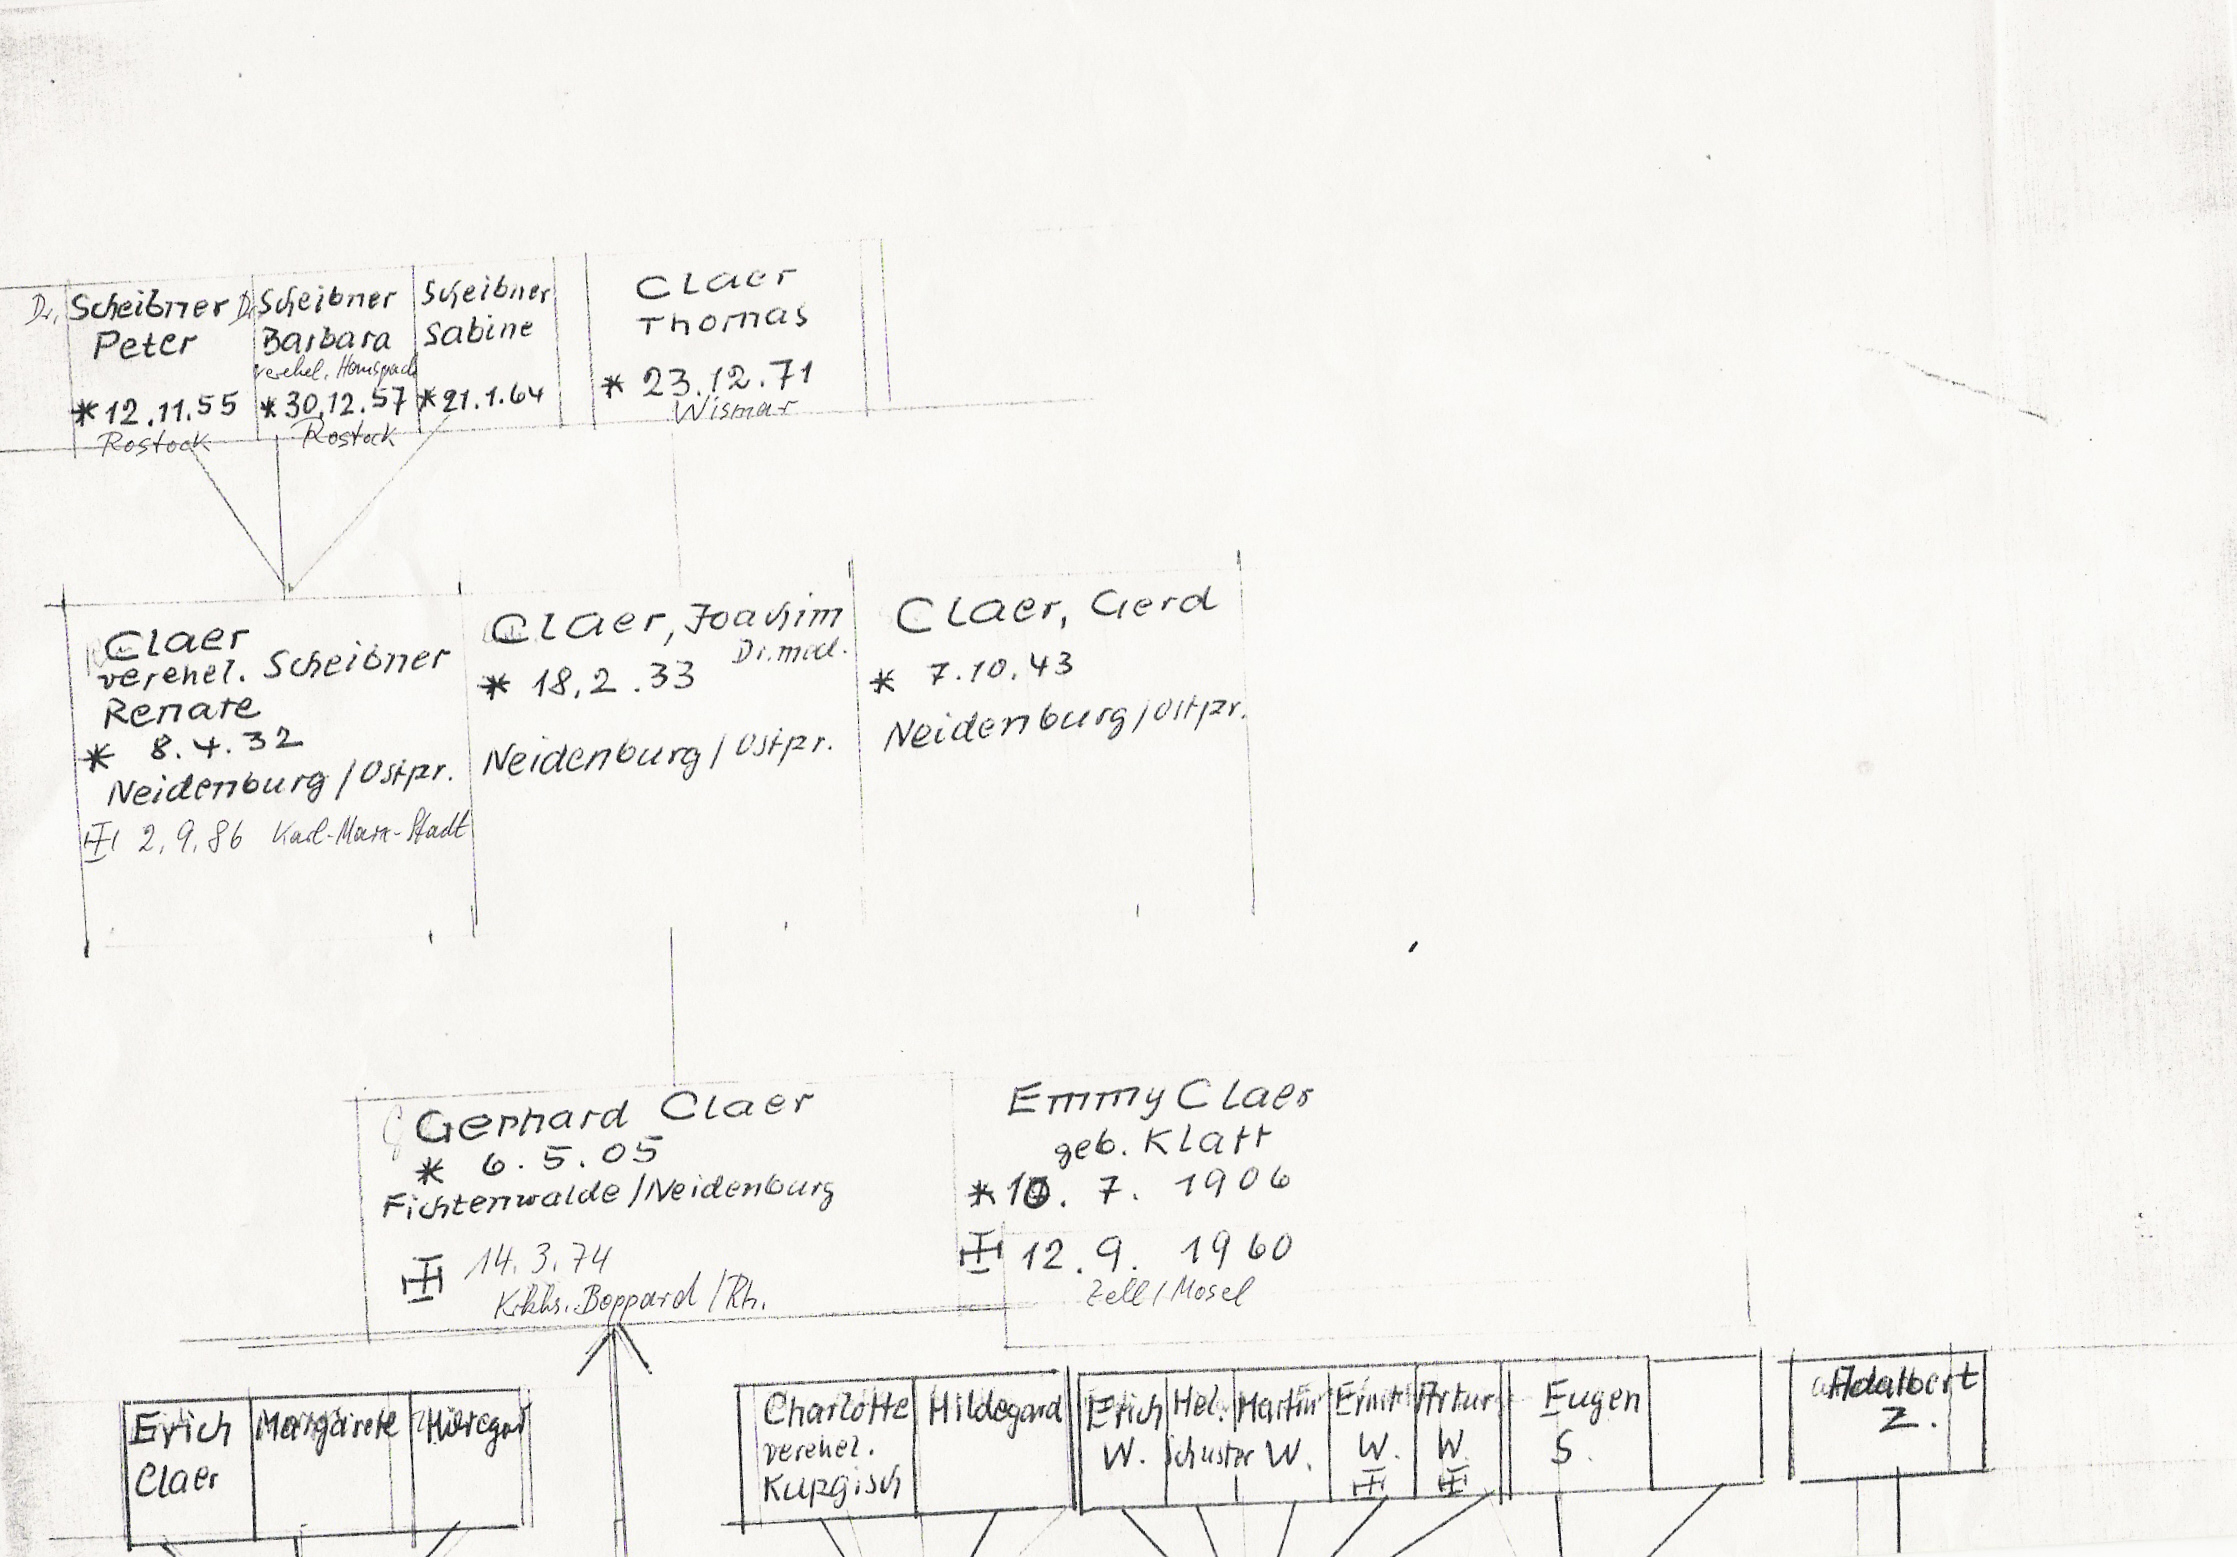 Dr. Scheibner
Peter
*12.11.55
Rostock
Dr. Scheibner
Barbara
verehel.
*30.12.57
Rostock
Scheibner
Sabine
*21.1.64
Claer
Thomas
* 23.12.71
Wismar
Claer
verehel. Scheibner
Renate
* 8.4.32
Neidenburg/Ostpr.
2.9.86 Karl-Marx-Stadt
Claer, Joachim
Dr. med.
* 18.2.33
Neidenburg/Ostpr.
Claer, Gerd
* 7.10.43
Neidenburg/Ostpr.
Gerhard Claer
* 6.5.05
Fichtenwalde/Neidenburg
14.3.74
Krkhs. Boppard/Rh.
Emmy Claer
geb. Klatt
*10. 7. 1906
12. 9. 1960
Zell/Mosel
Erich
Claer
Margarete
Charlotte
verehel.
Kupgisch
Hildegard
Erich
W.
Hel.
Schuster
Martin
W.
Ernst
W.
Artur
W.
Eugen
S.
Adalbert
Z.